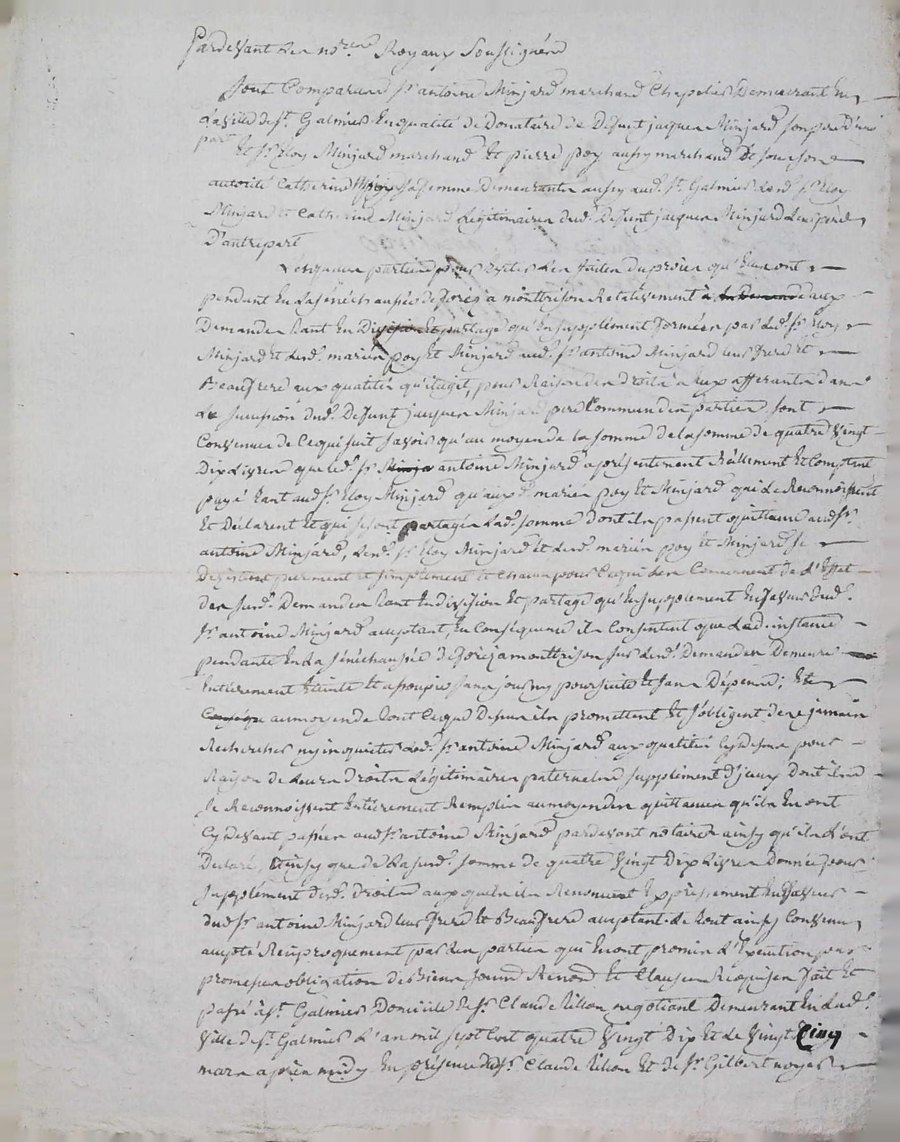 Pardevant Les no.res Royaux Soussignés
Sont Comparus sr. antoine Minjard marchand Chapelier Demeurant En
La ville de st. Galmier En qualité de Donataire de Defunt jacques Minjard son pere d'une
part
Et sr. Eloy Minjard marchand Et pierre poy aussy marchand Et de son
autorité Catherine Minjard sa femme Demeurants aussy aud. st. Galmier Lesd. sr. Eloy
Minjard et Catherine Minjard Légitimaires dud. Defunt jacques Minjard Leur pere
D'autre part
Lesquelles parties pour Eviter Les suites du procès qu'Elles ont
pendant En La sénéchaussée de forès a montbrison Relativement à deux
Demandes tant En Division Et partage qu'En supplément formées par Led. sr. Eloy
Minjard Et Lesd. mariés poy Et Minjard aud. sr. antoine Minjard Leur frere Et
Beaufrere aux qualités qu'il agit, pour Raison des droits a Eux afferants dans
La succession dud. Defunt jacques Minjard pere Commun des parties sont
Convenues de Ce qui suit savoir qu'au moyen de la somme de la somme de quatre vingt
Dix Livres que led. sr. antoine Minjard a présentement Réellement Et Comptant
payé tant aud. sr. Eloy Minjard qu'auxd. mariés poy Et Minjard qui Le Reconnoissent
Et Déclarent Et qui se sont partagés Lad. somme dont ils passent quittance aud. sr.
antoine Minjard, Led. sr. Eloy Minjard et Lesd. mariés poy Et Minjard se
Desistent purement et simplement Et chacun pour Ce qui Les Concernent de L'Effet
des susd. Demandes tant En division Et partage qu'En supplement En faveur dud.
sr. antoine Minjard acceptant, En Conséquence ils Consentent que Lad. instance
pendante En La sénéchaussée de forès a montbrison sur Lesd. Demandes Demeure
Entierement Eteinte Et assoupie sans jour ny poursuite Et sans Dépens; Et
au moyen de tout Ce que Dessus ils promettent Et s'obligent de ne jamais
Rechercher ny inquieter Led. sr. antoine Minjard aux qualités cy dessus pour
Raison de Leurs droits Légitimaires paternels supplément d'iceux dont ils
se Reconnoissent Entierement Remplis au moyen des quittances qu'ils En ont
Cy devant passées aud. sr. antoine Minjard pardevant notaire ainsy qu'ils L'ont
Declaré, Et insy que de La susd. somme de quatre vingt Dix Livres donnée pour
supplément desd. droits auxquels ils Renoncent Expressement En faveur
dud. sr. antoine Minjard Leur frere Et Beaufrere acceptant. Le tout ainsy Convenu
accepté Reciproquement par Les parties qui En ont promis L'Execution par
promesses obligation de Biens soumis. Renon. Et Clauses Requises fait Et
passé à st. Galmier Domicile de sr. Claude Nilion negotiant Demeurant En Lad.
ville de st. Galmier L'an mil sept Cent quatre vingt Dix Et Le vingt Cinq
mars après midy En présence dud. sr. Claude Nilion Et de sr. Gilbert noyer